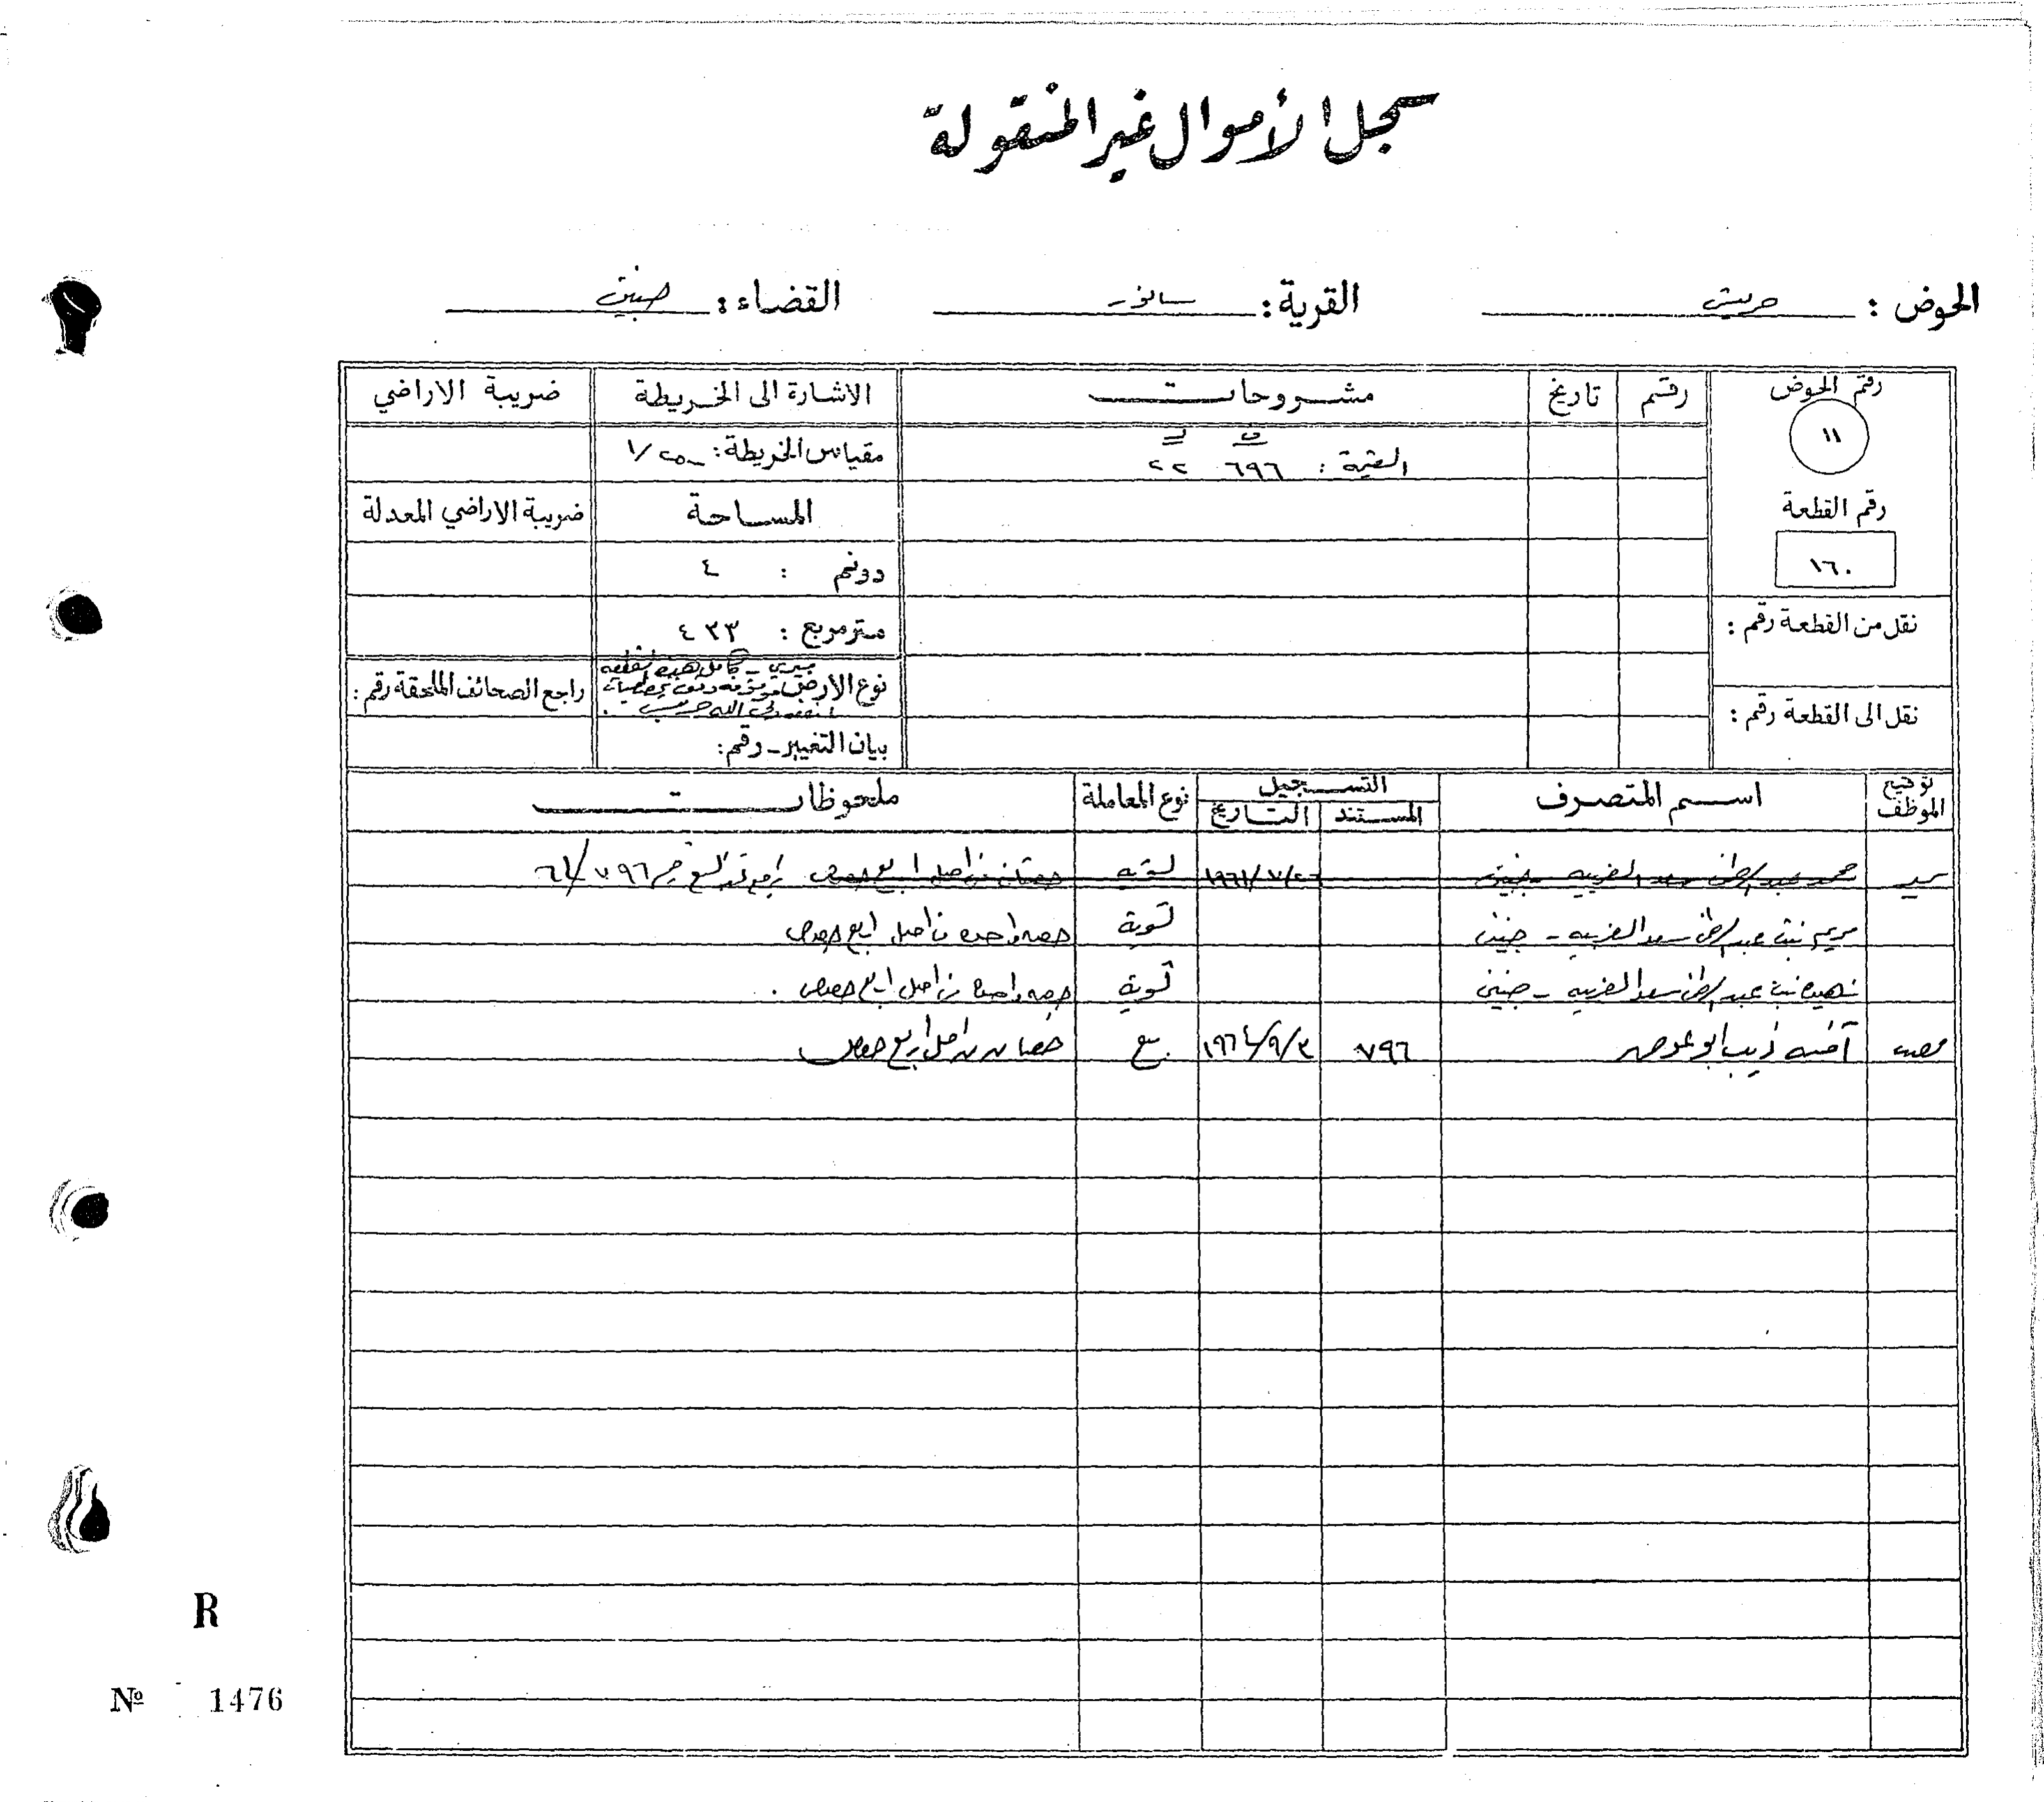 سجل الأموال غير المنقولة
الحوض : حريش القرية : سانور القضاء : جنين
رقم الحوض رقم تاريخ مشروحات الاشارة الى الخريطة ضريبة الاراضي
١١
القيمة : ٦٩٦ ٢٢ مقياس الخريطة : ١/٢٥٠٠
رقم القطعة المساحة ضريبة الاراضي المعدلة
١٦٠ دونم : ٤
نقل من القطعة رقم : متر مربع : ٤٣٣
ميري - كامل هذه القطعة
نوع الارض راجع الصحائف الملحقة رقم :
نقل الى القطعة رقم :
بيان التغيير - رقم :
توقيع الموظف اسم المتصرف التسجيل نوع المعاملة ملحوظات
المستند التاريخ
محمد عبد الرحمن سعد الغربيه - جنين ١٩٦١/٧/٢٦ تسوية حصتان من اصل اربع حصص ٦٤/٧٩٦
مريم بنت عبد الرحمن سعد الغربيه - جنين تسوية حصه واحده من اصل اربع حصص
شهيره بنت عبد الرحمن سعد الغربيه - جنين تسوية حصه واحده من اصل اربع حصص .
آمنه ذيب ابو عرهر ٧٩٦ ١٩٦٤/٩/٣ بيع حصتان من اصل اربع حصص
R
№ 1476